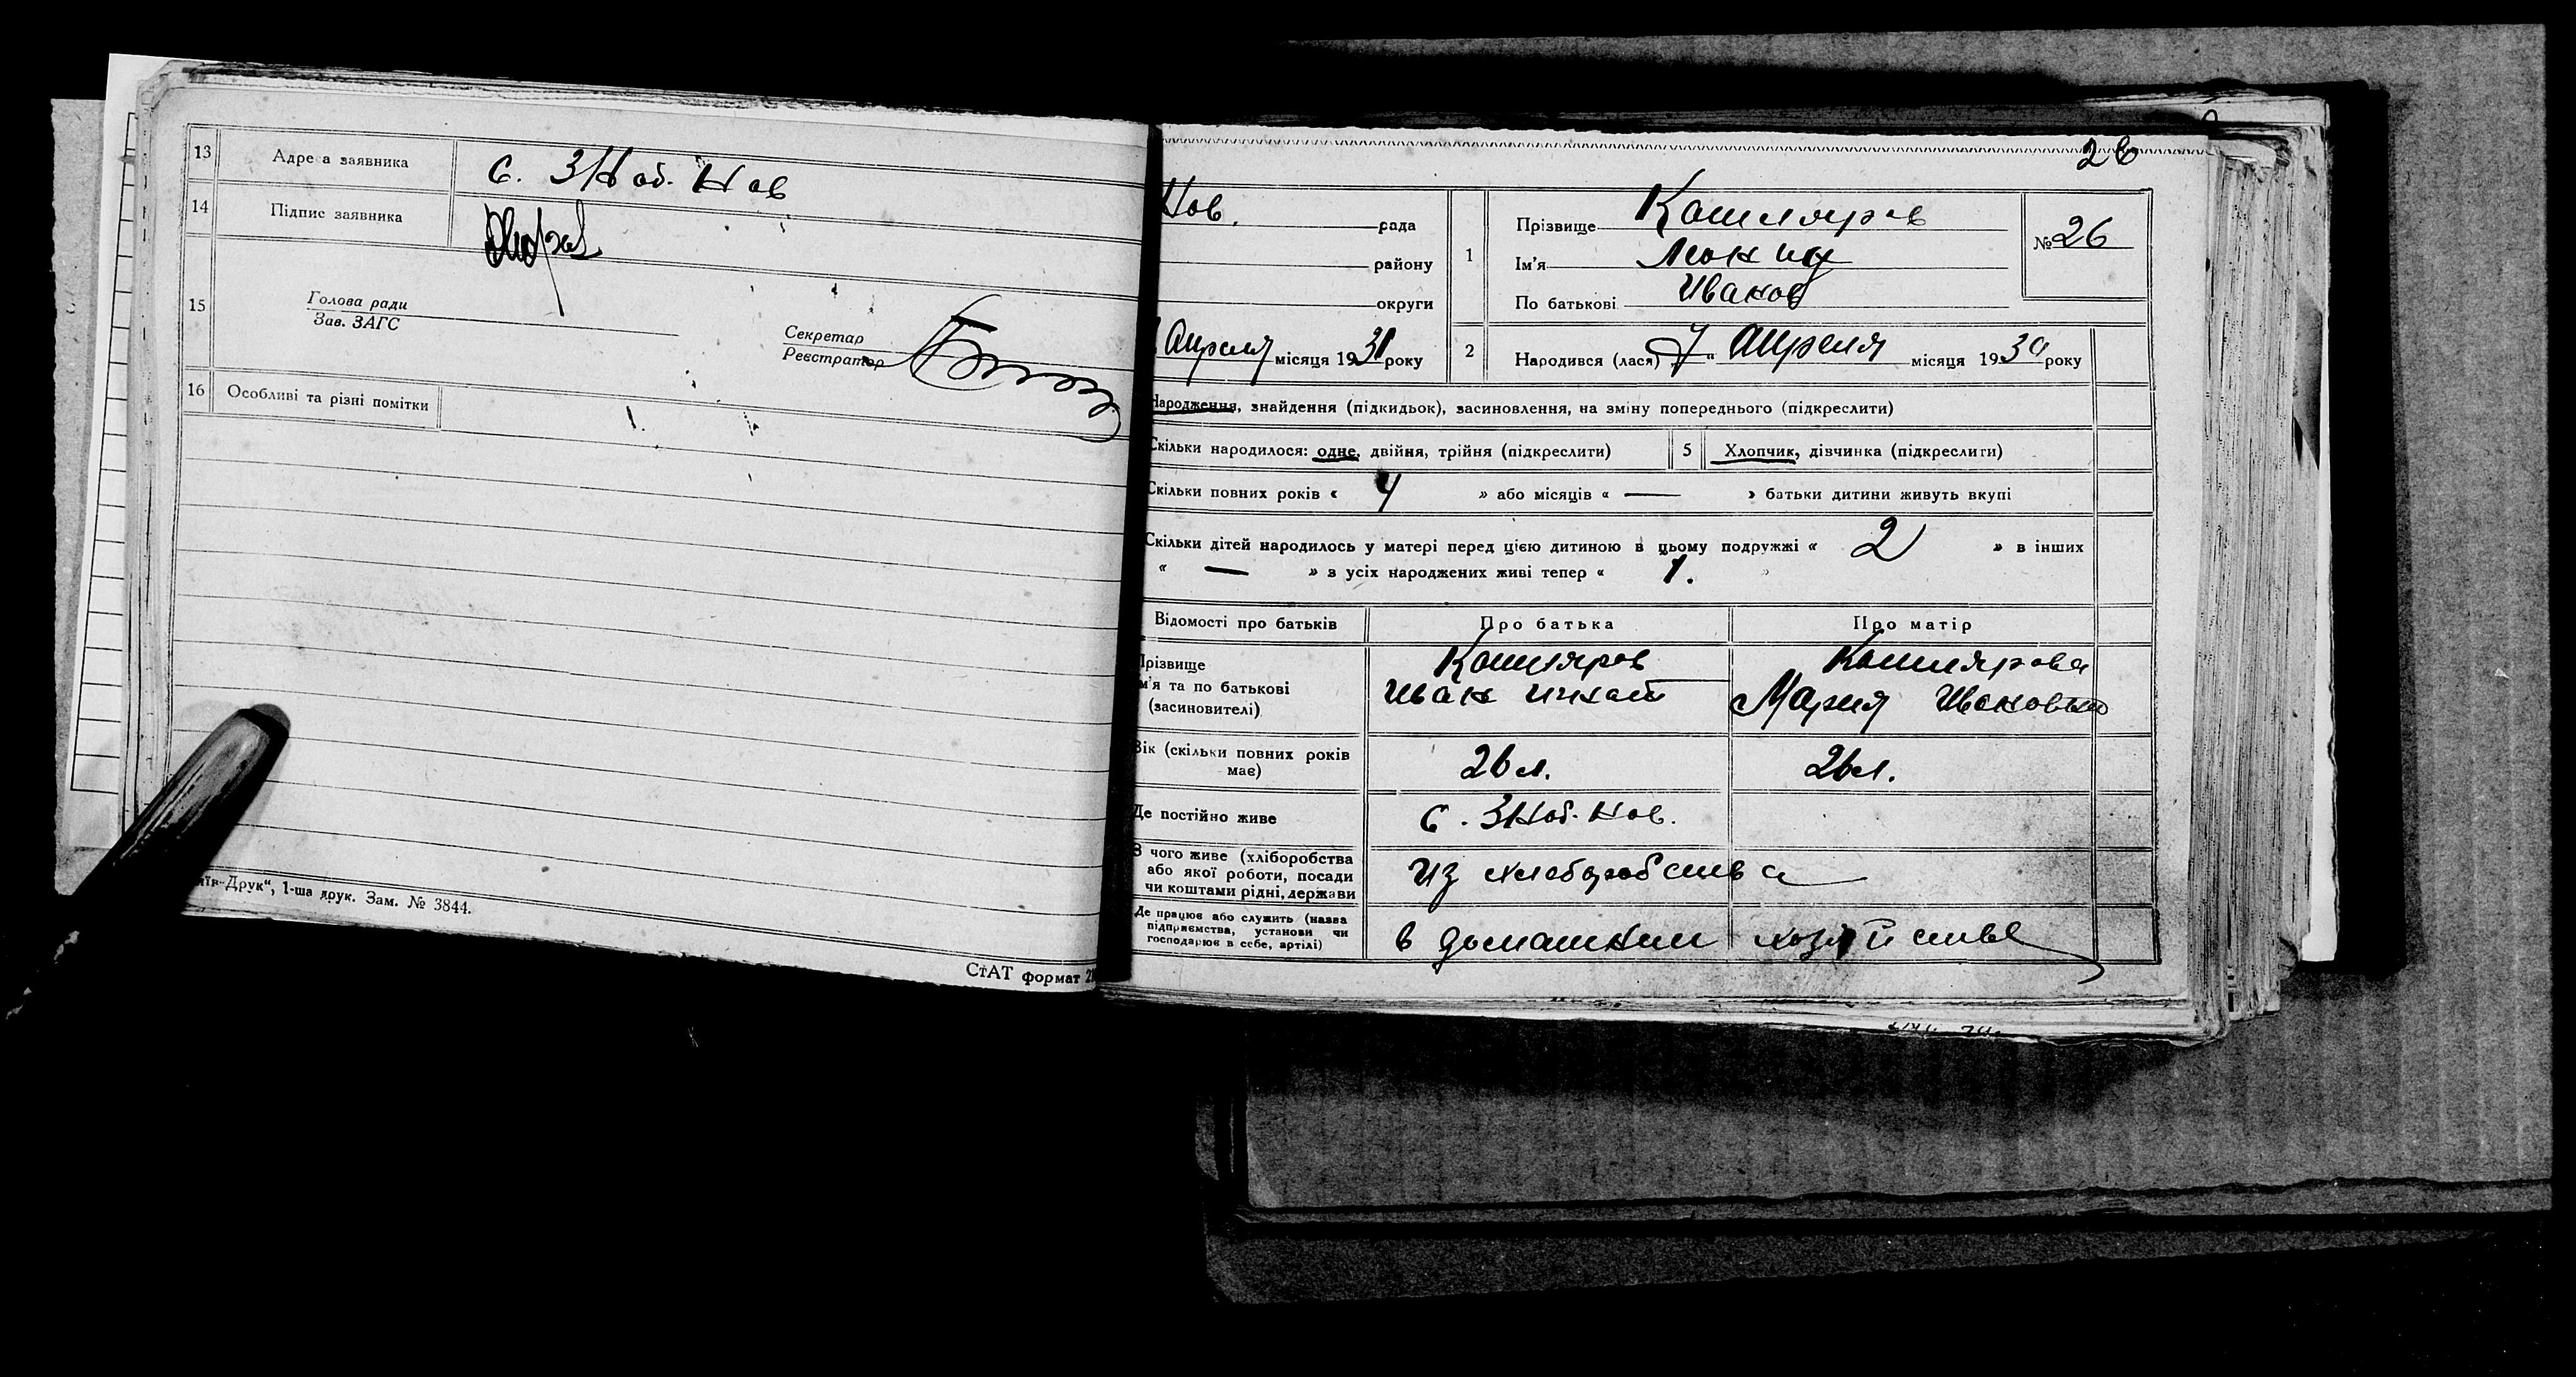 13 Адреса заявника с. ЗНоб. Нов
14 Підпис заявника
15 Голова ради
Зав. ЗАГС
Секретар
Реєстратор
16 Особливі та різні помітки
їв-Друк“, 1-ша друк. Зам. № 3844.
СтАТ формат
26
Нов. рада
району
округи
Апреля місяця 1931 року
1 Прізвище Котляров
Ім'я
По батькові Иванов
№ 26
2 Народився (лася) 7 „ Апреля місяця 1930 року
Народження, знайдення (підкидьок), засиновлення, на зміну попереднього (підкреслити)
Скільки народилося: одне, двійня, трійня (підкреслити) 5 Хлопчик, дівчинка (підкреслити)
Скільки повних років « 4 » або місяців « — » батьки дитини живуть вкупі
Скільки дітей народилось у матері перед цією дитиною в цьому подружжі « 2 » в інших
« — » з усіх народжених живі тепер « 1. »
Відомості про батьків Про батька Про матір
Прізвище Котляров Котлярова
м'я та по батькові Иван Мария Ивановна
(засиновителі)
Вік (скільки повних років 26 л. 26 л.
має)
Де постійно живе с. ЗНоб. Нов.
З чого живе (хліборобства
або якої роботи, посади из хлеборобства
чи коштами рідні, держави
Де працює або служить (назва
підприємства, установи чи в домашним хозяйстве
господарює в себе, артілі)